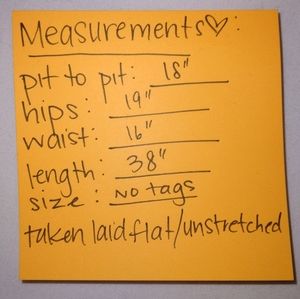 Measurements♡:
pit to pit: 18"
hips: 19"
waist: 16"
length: 38"
size: no tags
taken laid flat/unstretched